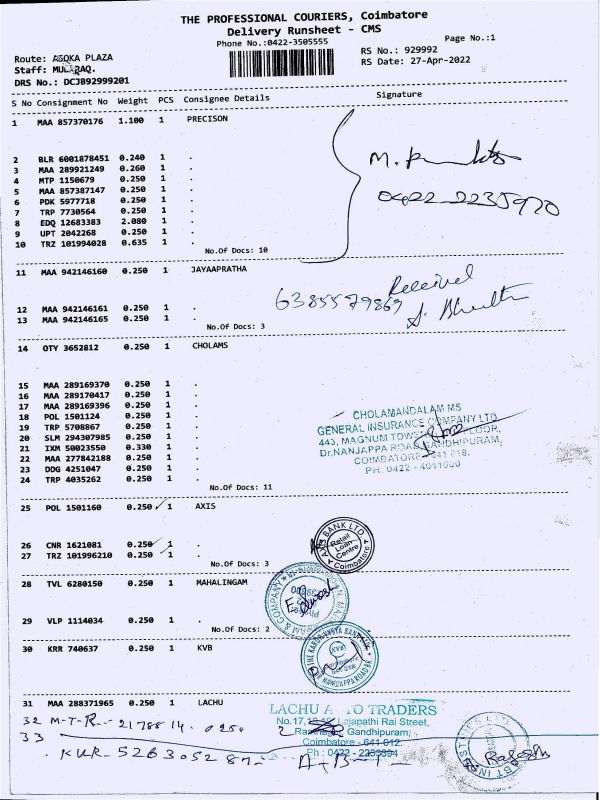 THE PROFESSIONAL COURIERS, Coimbatore
Delivery Runsheet - CMS
Phone No.:0422-3505555
Page No.:1
Route: ASOKA PLAZA
RS No.: 929992
Staff: MUBARAQ.
RS Date: 27-Apr-2022
DRS No.: DCJ892999201
S No Consignment No Weight PCS Consignee Details Signature
1 MAA 857370176 1.100 1 PRECISON
2 BLR 6001878451 0.240 1 .
3 MAA 289921249 0.260 1 .
4 MTP 1150679 0.250 1 .
5 MAA 857387147 0.250 1 .
6 PDK 5977718 0.250 1 .
7 TRP 7730564 0.250 1 .
8 EDQ 12683383 2.080 1 .
9 UPT 2042268 0.250 1 .
10 TRZ 101994028 0.635 1 .
No.Of Docs: 10
M.
0422 2235970
11 MAA 942146160 0.250 1 JAYAAPRATHA
12 MAA 942146161 0.250 1 .
13 MAA 942146165 0.250 1 .
No.Of Docs: 3
Received
6385579869
14 OTY 3652812 0.250 1 CHOLAMS
15 MAA 289169370 0.250 1 .
16 MAA 289170417 0.250 1 .
17 MAA 289169396 0.250 1 .
18 POL 1501124 0.250 1 .
19 TRP 5708867 0.250 1 .
20 SLM 294307985 0.250 1 .
21 IXM 50023550 0.330 1 .
22 MAA 277842188 0.250 1 .
23 DDG 4251047 0.250 1 .
24 TRP 4035262 0.250 1 .
No.Of Docs: 11
CHOLAMANDALAM MS
GENERAL INSURANCE COMPANY LTD
443, MAGNUM FLOOR,
Dr.NANJAPPA ROAD, GANDHIPURAM,
COIMBATORE - 641 018.
PH: 0422 - 4011000
25 POL 1501160 0.250 1 AXIS
26 CNR 1621081 0.250 1 .
27 TRZ 101996210 0.250 1 .
No.Of Docs: 3
AXIS BANK LTD.
Retail
Loan
Centre
Coimbatore
28 TVL 6280150 0.250 1 MAHALINGAM
29 VLP 1114034 0.250 1 .
No.Of Docs: 2
& COMPANY
30 KRR 740637 0.250 1 KVB
KVB
31 MAA 288371965 0.250 1 LACHU
LACHU TRADERS
No.17, Lajapathi Rai Street,
Gandhipuram,
Coimbatore - 641 012.
Ph : 0422 -
32 M-T-R
33